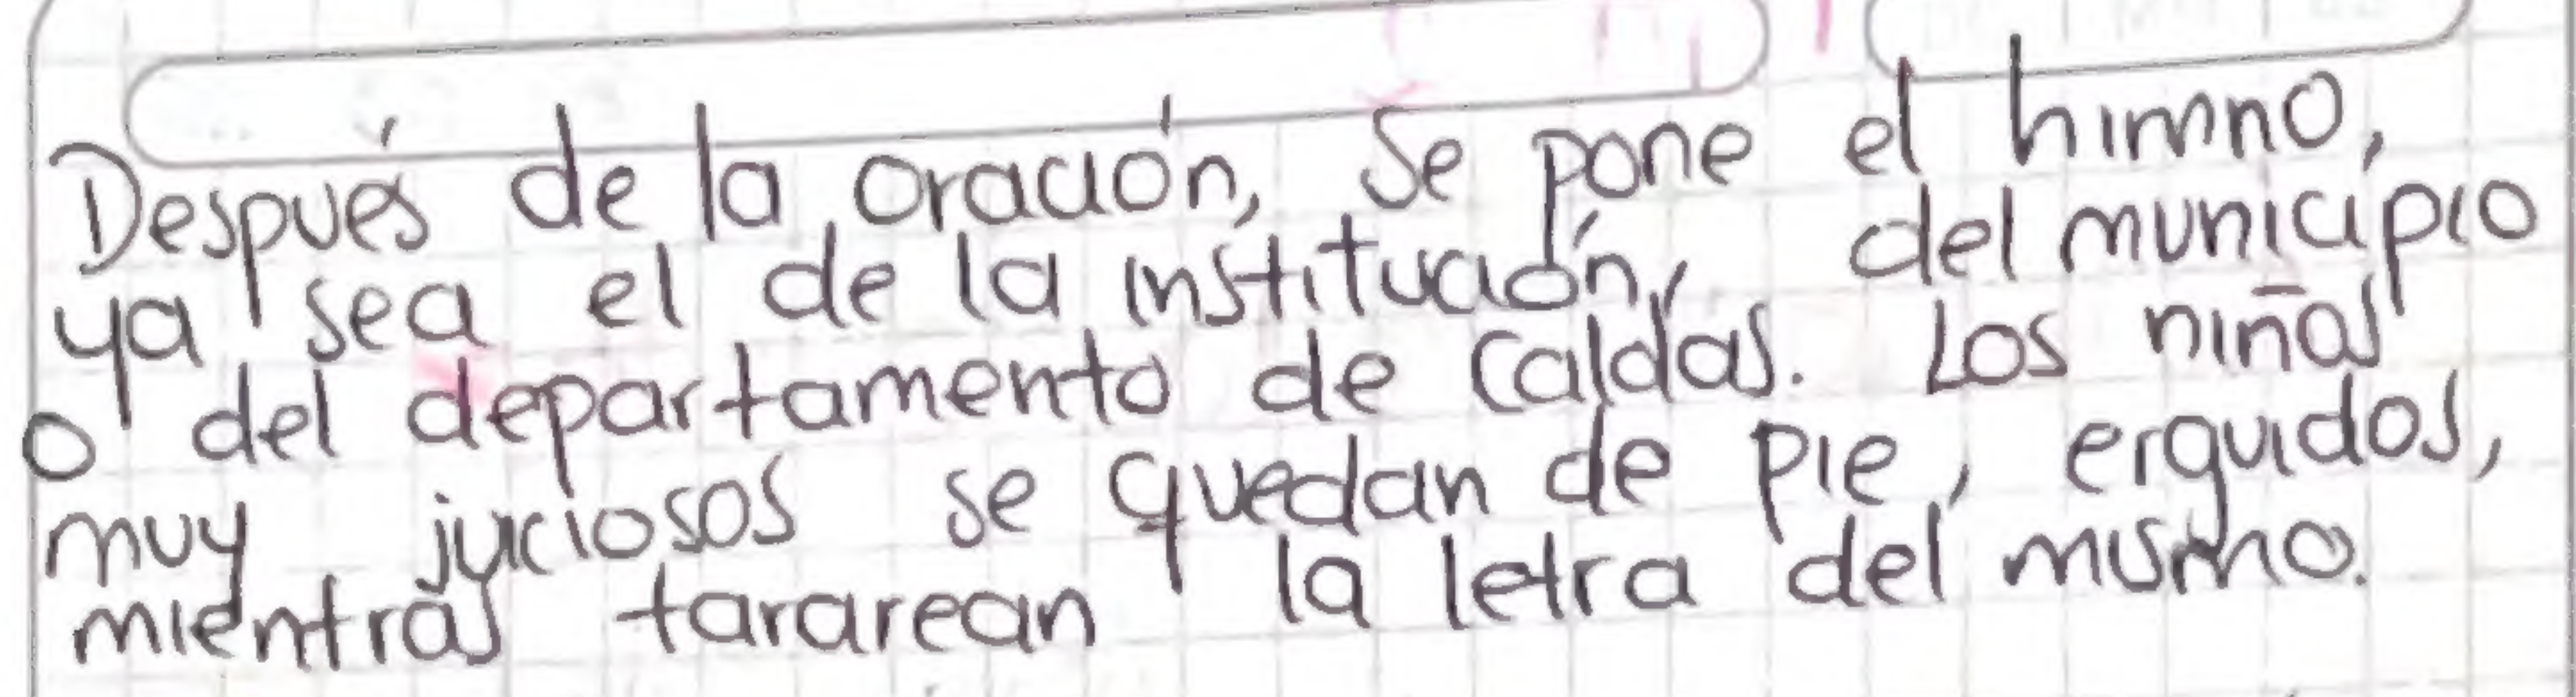 Después de la oración, se pone el himno,
ya sea el de la institución, del municipio
o del departamento de Caldas. Los niños
muy juiciosos se quedan de pie, erguidos,
mientras tararean la letra del mismo.